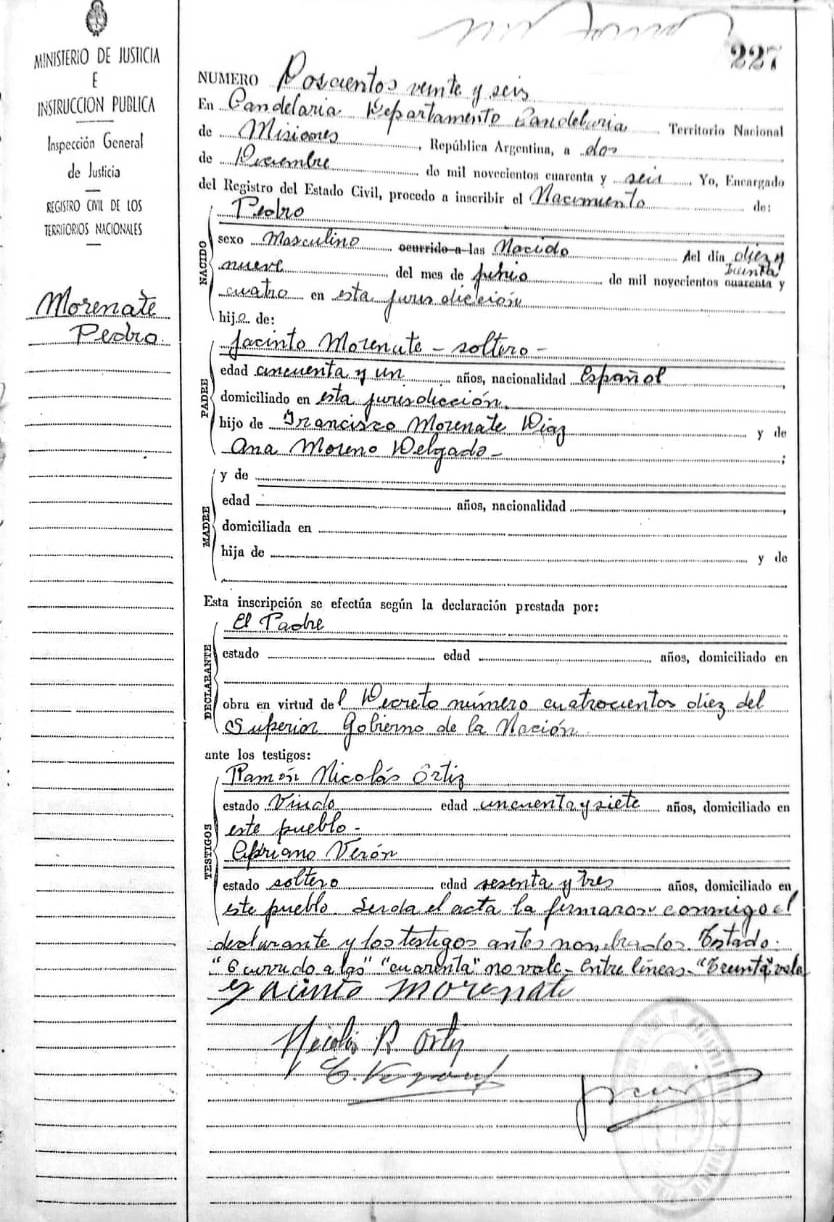 227
MINISTERIO DE JUSTICIA
E
INSTRUCCION PUBLICA
Inspección General
de Justicia
REGISTRO CIVIL DE LOS
TERRITORIOS NACIONALES
Morenate
Pedro
NUMERO Doscientos veinte y seis
En Candelaria Departamento Candelaria Territorio Nacional
de Misiones, República Argentina, a dos
de Diciembre de mil novecientos cuarenta y seis Yo, Encargado
del Registro del Estado Civil, procedo a inscribir el Nacimiento de:
NACIDO
Pedro
sexo Masculino ocurrido a las Nacido del día diez y
treinta
nueve del mes de junio de mil novecientos cuarenta y
cuatro en esta jurisdicción
hijo de:
PADRE
Jacinto Morenate - soltero -
edad cincuenta y un años, nacionalidad Español,
domiciliado en esta jurisdicción,
hijo de Francisco Morenate Diaz y de
Ana Moreno Delgado - ;
MADRE
y de
edad años, nacionalidad ,
domiciliada en
hija de y de
Esta inscripción se efectúa según la declaración prestada por:
DECLARANTE
El Padre
estado edad años, domiciliado en
obra en virtud del Decreto número cuatrocientos diez del
Superior Gobierno de la Nación
ante los testigos:
TESTIGOS
Ramón Nicolás Ortiz
estado Viudo edad cincuenta y siete años, domiciliado en
este pueblo -
Cipriano Verón
estado soltero edad sesenta y tres años, domiciliado en
este pueblo. Leida el acta la firmaron conmigo el
declarante y los testigos antes nombrados. Testado:
"Ocurrido a las" "cuarenta" no vale - Entre líneas - "Treinta" vale
Jacinto Morenate
Nicolás R Ortiz
C. Veron